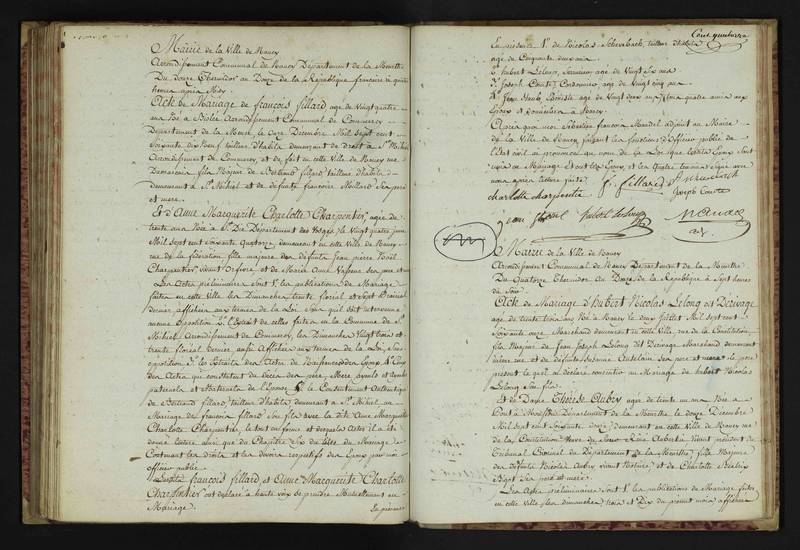 Mairie de la Ville de Nancy
Arrondissement Communal de Nancy Département de la Meurthe
Du Douze Thermidor an Douze de la République française à quatre
heures après Midy
Acte de Mariage de françois fillard age de Vingt quatre
ans Né à Arrondissement Communal de Commercy
Département de la Meuse, le onze Décembre Mil sept cent
Soixante dix Neuf tailleur d'habits demeurant de droit à St. Mihiel
Arrondissement de Commercy, et de fait en cette Ville de Nancy rue
fils Majeur de Bertrand fillard tailleur d'habits
demeurant à St. Mihiel et de défunte françoise Mollard Ses père
et mere.
Et d'Anne Marguerite Charlotte Charpentier, agée de
trente ans Née à St. Dié Département des Vosges, le Vingt quatre juin
Mil Sept cent Soixante quatorze demeurant en cette Ville de Nancy
rue de la fédération fille majeure des défunts jean pierre
Charpentier, vivant Orfevre, et de Marie Anne Ses père et mere
Les Actes préliminaires Sont 1° les publications de Mariage
faites en cette Ville les Dimanches trente floréal et Sept Prairial
dernier, affichées aux termes de la Loi, Sans qu'il soit intervenu
aucune Opposition 2° l'Extrait de celles faites en la Commune de St.
Mihiel Arrondissement de Commercy, les Dimanches Vingt trois et
trente floréal dernier aussi Affichées aux termes de la Loi, Sans
opposition 3° les Extraits des Actes de Naissance des Epoux 4° Ceux
des Actes qui constatent le décès des père, Mere, ayeuls et ayeules
paternels et Maternels de l'Epouse 5° le Consentement Autentique
de Bertrand fillard, tailleur d'habits demeurant à St. Mihiel au
Mariage de françois fillard Son fils avec la dite Anne Marguerite
Charlotte Charpentier, le tout en forme, et desquels Actes il a été
donné lecture ainsi que du Chapitre Six du titre du Mariage
Contenant les droits et les devoirs respectifs des Epoux, par
officier public.
Lesdits françois fillard et Anne Marguerite Charlotte
Charpentier ont déclaré à haute voix se prendre Mutuellement en
Mariage.
En présence
En présence 1° de Nicolas tailleur d'habits
age de Cinquante deux ans
2° hubert Lelong, age de Vingt Six ans
3° Joseph Comte Cordonnier, age de Vingt cinq ans
4° jean age de Vingt deux ans, tous quatre amis aux
Epoux et domiciliés à Nancy
Après quoi moi Sébastien françois Mandel adjoint au Maire
de la Ville de Nancy, faisant les fonctions d'Officier public de
l'Etat civil ai prononcé au nom de la Loi que lesdits Epoux Sont
unis en Mariage, et ont les Epoux, et les quatre témoins Signé avec
moi après lecture faite.
charlotte charpentier f. fillard
joseph Comte
jean hubert Lelong Mandel
adj.
Mairie de la Ville de Nancy
Arrondissement Communal de Nancy Département de la Meurthe
Du Quatorze Thermidor an Douze de la République à Sept heures
du Soir.
Acte de Mariage d'Hubert Nicolas Lelong dit Décivage
age de trente trois ans Né à Nancy le deux juillet Mil Sept cent
Soixante onze Marchand demeurant en cette Ville, rue de la Constitution
fils Majeur de Jean Joseph Lelong dit Marchand demeurant
même rue et de défunte Susanne Ses père et mere; le père
présent Lequel a déclaré consentir au Mariage de hubert Nicolas
Lelong Son fils.
Et de Dame Thérèse Aubry agée de trente un ans Née à
Pont à Mousson Département de la Meurthe le douze Décembre
Mil Sept cent Soixante douze, demeurant en cette Ville de Nancy rue
de la Constitution Veuve de Vivant président du
Tribunal Criminel du Département de la Meurthe, fille Majeure
des défunts Nicolas Aubry vivant Notaire, et de Charlotte
Ses père et mere.
Les Actes préliminaires Sont 1° les publications de Mariage faites
en cette Ville, les dimanches trois et Dix du présent mois affichées